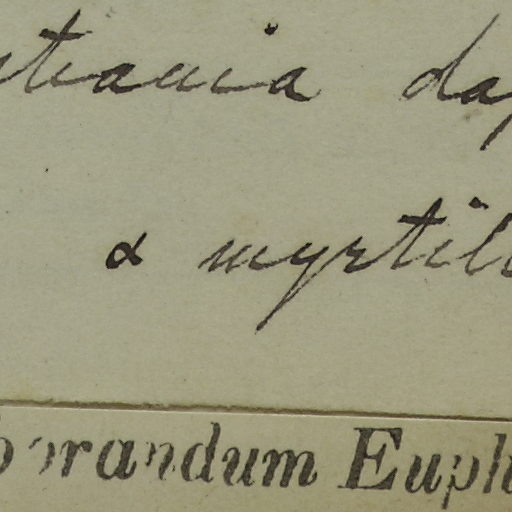 stiania dap
α myrtill
orandum Euph